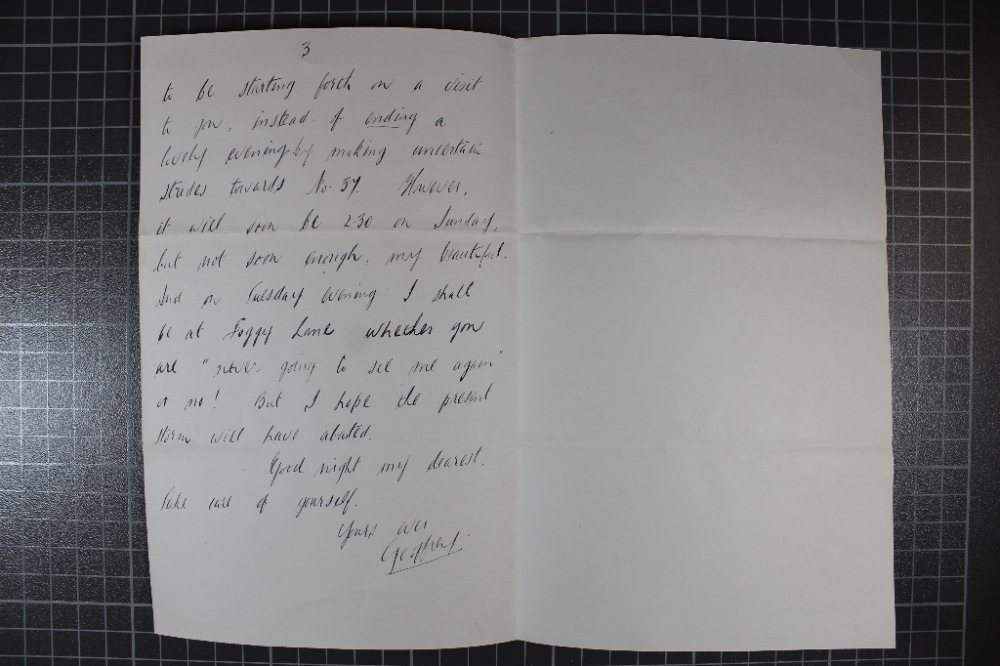 3
to be starting forth on a visit
to you, instead of ending a
lovely evening by making uncertain
strides towards No. 37. However,
it will soon be 2.30 on Sunday,
but not soon enough, my beautiful.
And on Tuesday evening I shall
be at Foggy Lane whether you
are "never going to see me again"
or no! But I hope the present
storm will have abated.
Good night my dearest.
Take care of yourself.
Yours ever
Geoffrey.